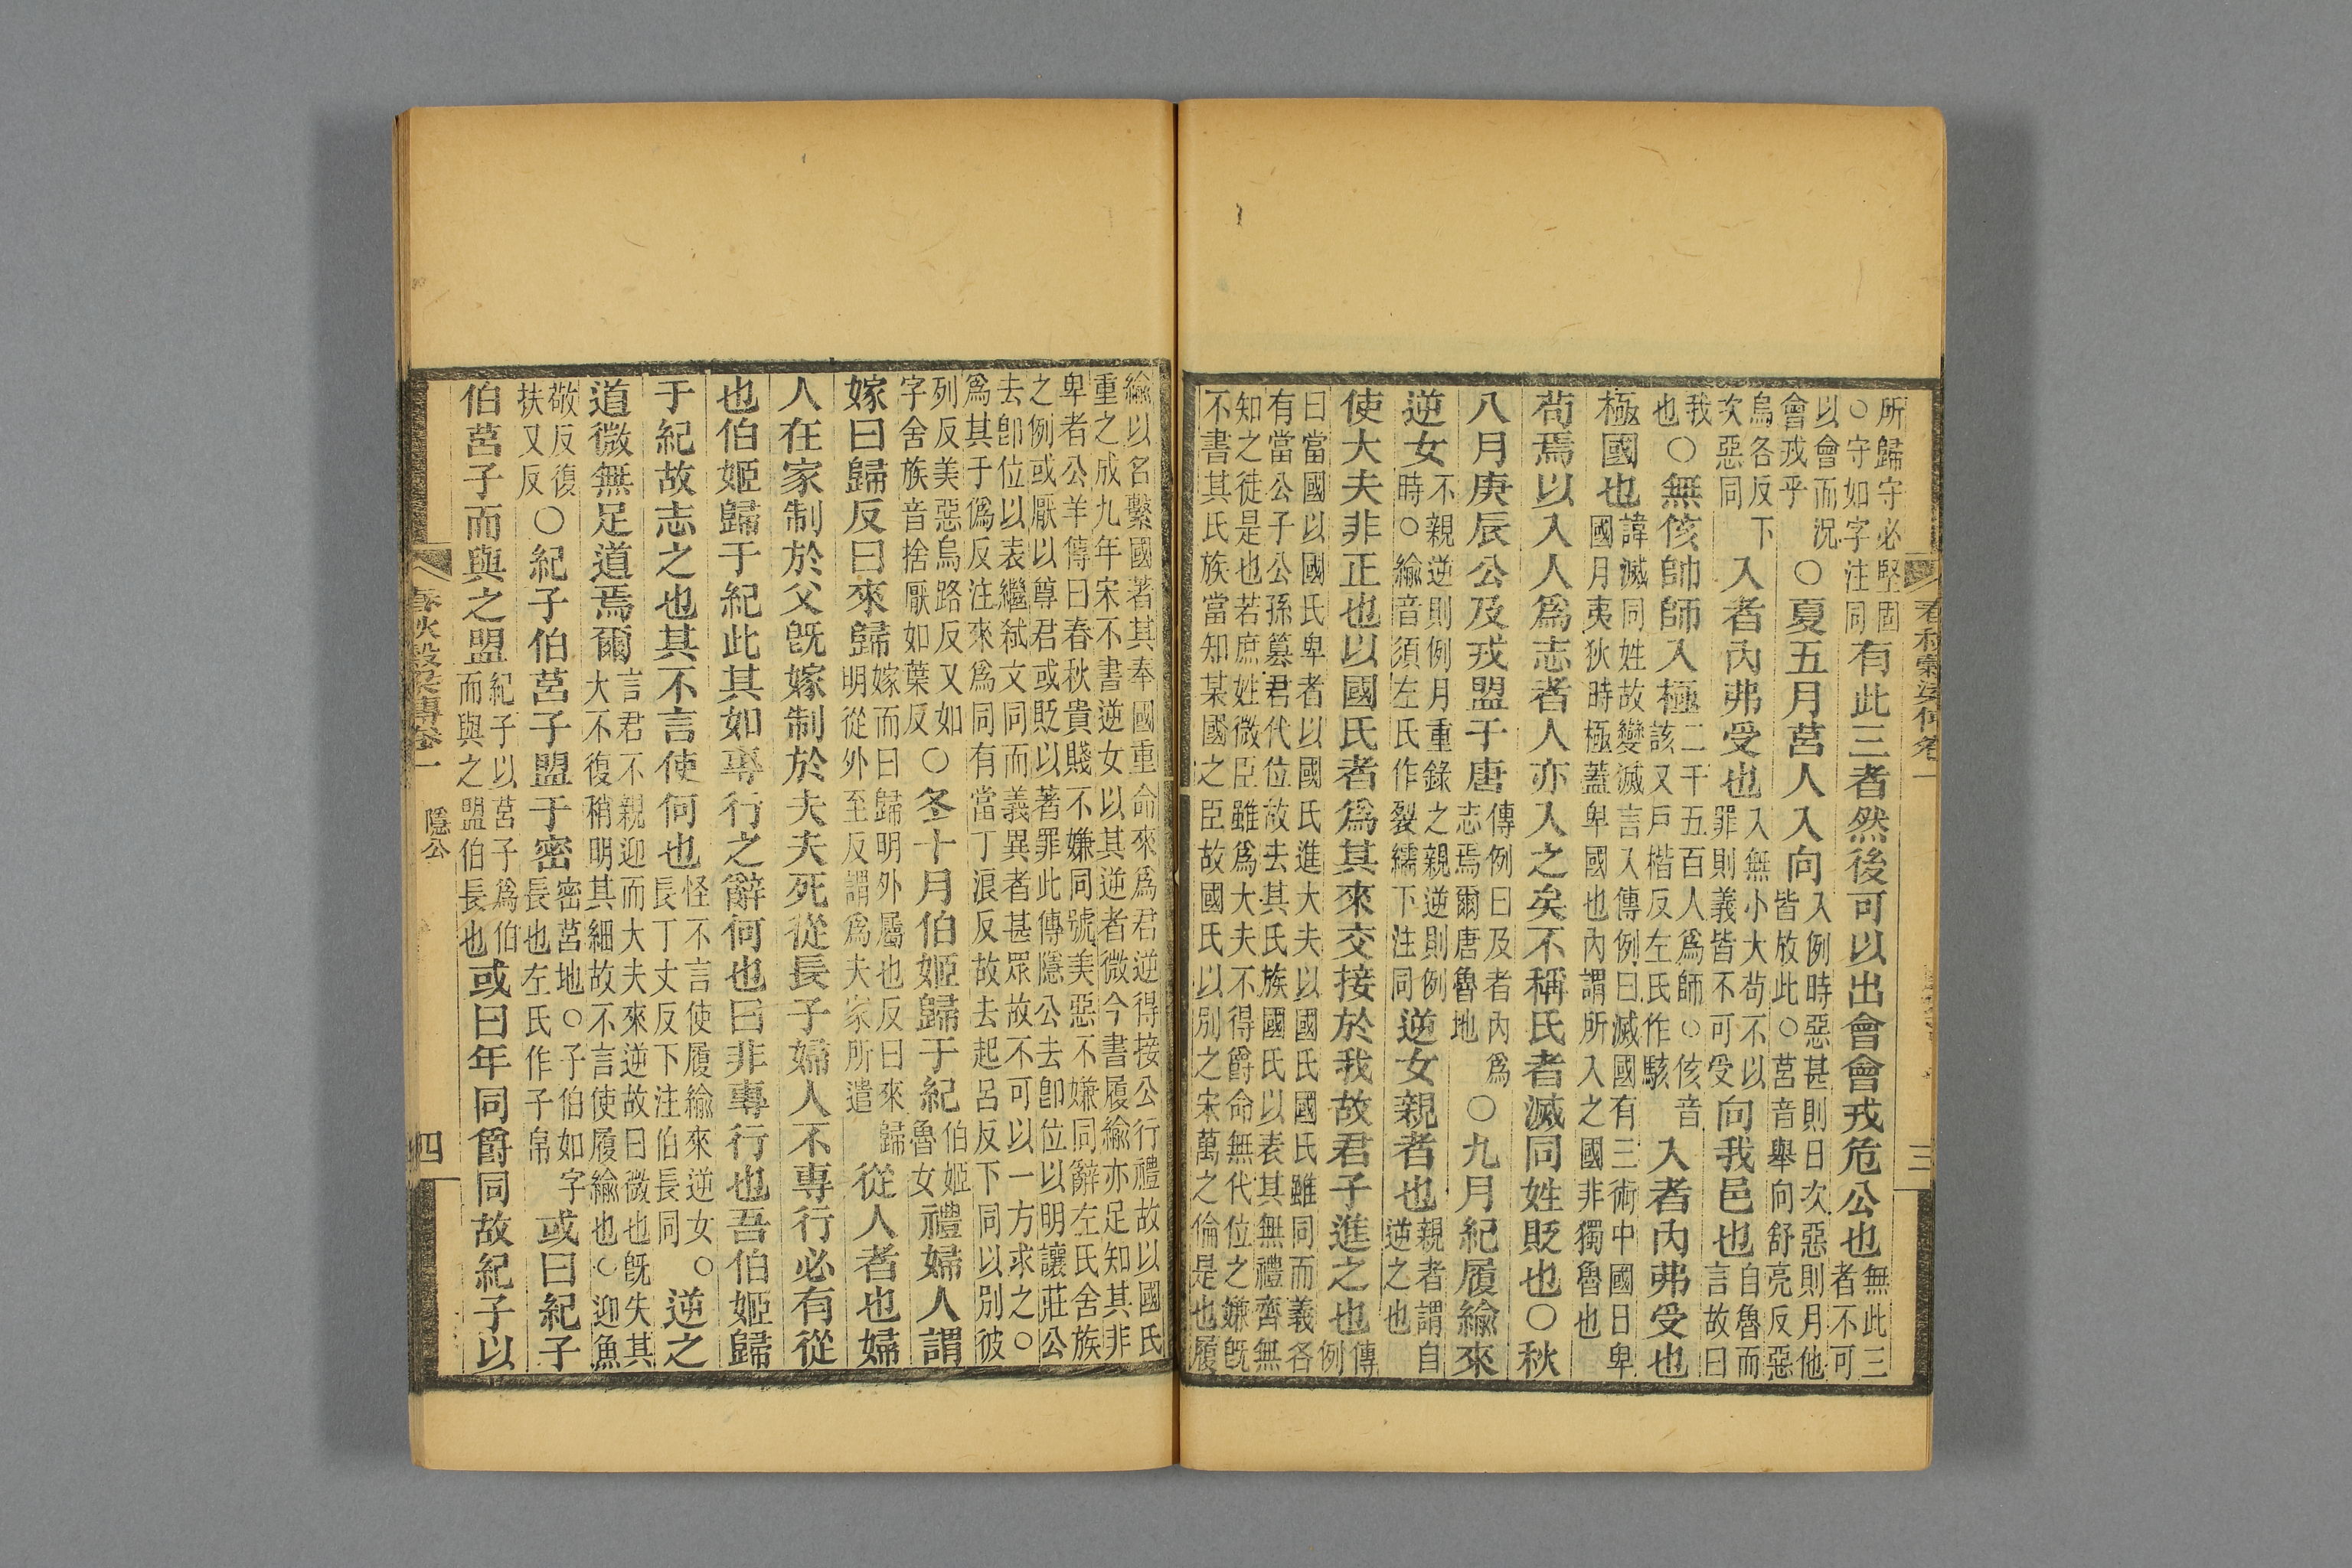 春秋穀梁傳卷一
三
所歸守必堅固○守如字注同有此三者然後可以出會會戎危公也無此三者不可
以會而況會戎乎○夏五月莒人入向入例時惡甚則日次惡則月他皆放此○莒音舉向舒亮反惡
烏各反下次惡同入者內弗受也入無小大苟不以罪則義皆不可受向我邑也自魯而言故曰
我也○無侅帥師入極二千五百人爲師○侅音該又戶楷反左氏作駭入者內弗受也
極國也諱滅同姓故變滅言入傳例曰滅國有三術中國日卑國月夷狄時極蓋卑國也內謂所入之國非獨魯也
苟焉以入人爲志者人亦入之矣不稱氏者滅同姓貶也○秋
八月庚辰公及戎盟于唐傳例曰及者內爲志焉爾唐魯地○九月紀履緰來
逆女不親逆則例月重錄之親逆則例時○緰音須左氏作裂繻下注同逆女親者也親者謂自逆之也
使大夫非正也以國氏者爲其來交接於我故君子進之也傳例
曰當國以國氏卑者以國氏進大夫以國氏國氏雖同而義各有當公子公孫簒君代位故去其氏族國氏以表其無禮齊無
知之徒是也若庶姓微臣雖爲大夫不得爵命無代位之嫌旣不書其氏族當知某國之臣故國氏以別之宋萬之倫是也履
緰以名繫國著其奉國重命來爲君逆得接公行禮故以國氏重之成九年宋不書逆女以其逆者微今書履緰亦足知其非
卑者公羊傳曰春秋貴賤不嫌同號美惡不嫌同辭左氏舍族之例或厭以尊君或貶以著罪此傳隱公去卽位以明讓莊公
去卽位以表繼弑文同而義異者甚眾故不可以一方求之○爲其于僞反注來爲同有當丁浪反故去起呂反下同以別彼
列反美惡烏路反又如字舍族音捨厭如葉反○冬十月伯姬歸于紀伯姬魯女禮婦人謂
嫁曰歸反曰來歸嫁而曰歸明外屬也反曰來歸明從外至反謂爲夫家所遣從人者也婦
人在家制於父旣嫁制於夫夫死從長子婦人不專行必有從
也伯姬歸于紀此其如專行之辭何也曰非專行也吾伯姬歸
于紀故志之也其不言使何也怪不言使履緰來逆女○長丁丈反下注伯長同逆之
道微無足道焉爾言君不親迎而大夫來逆故曰微也旣失其大不復稍明其細故不言使履緰也○迎魚
敬反復扶又反○紀子伯莒子盟于密密莒地○子伯如字長也左氏作子帛或曰紀子
伯莒子而與之盟紀子以莒子爲伯而與之盟伯長也或曰年同爵同故紀子以
春秋穀梁傳卷一
隱公
四